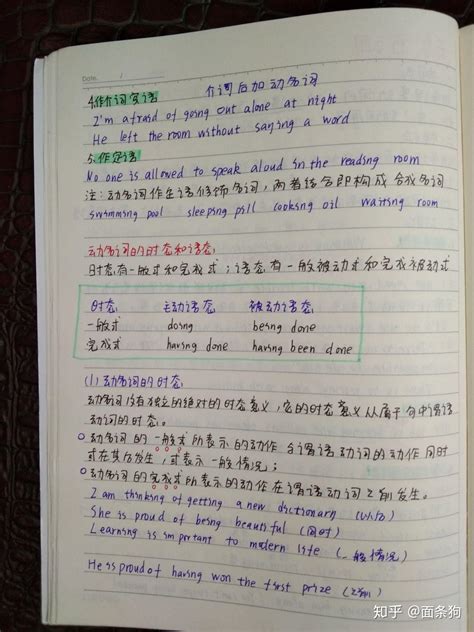 Date. 1
4.作介词宾语 介词后加动名词
I'm afraid of going out alone at night
He left the room without saying a word
5.作定语
No one is allowed to speak aloud in the reading room
注:动名词作定语修饰名词,两者结合即构成合成名词
swimming pool sleeping pill cooking oil waiting room
动名词的时态和语态:
时态有一般式和完成式;语态有一般被动式和完成被动式
时态 主动语态 被动语态
一般式 doing being done
完成式 having done having been done
(1)动名词的时态:
动名词没有独立的绝对的时态意义,它的时态意义从属于句中谓语
动词的时态。
动名词的一般式所表示的动作与谓语动词的动作同时
或在其后发生,或表示一般情况;
动名词的完成式所表示的动作在谓语动词之前发生。
I am thinking of getting a new dictionary (以后)
She is proud of being beautiful (同时)
Learning is important to modern life (一般情况)
He is proud of having won the first prize (之前)
知乎 @面条狗